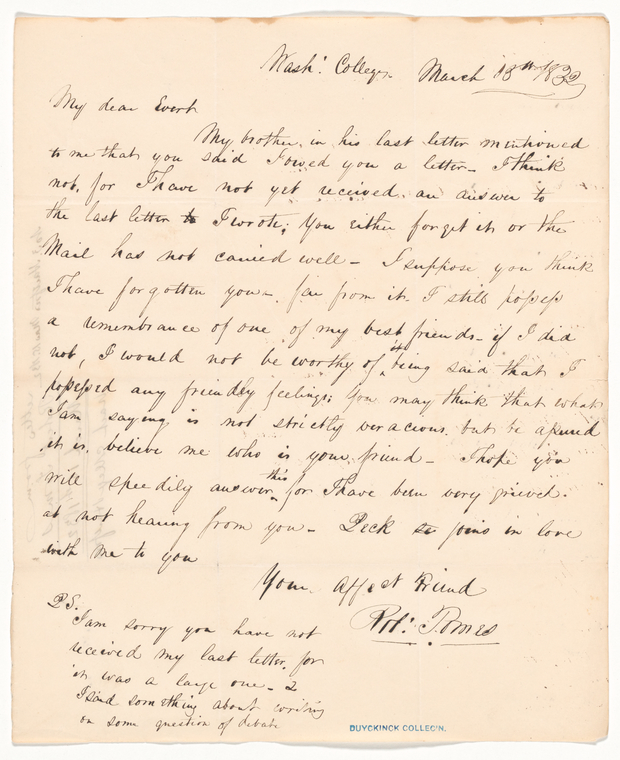 Wash: College March 13th 1832
My dear Evert
My brother in his last letter mentioned
to me that you said I owed you a letter - I think
not, for I have not yet received an answer to
the last letter to I wrote; You either forget it or the
Mail has not carried well - I suppose you think
I have forgotten you - far from it. I still possess
a remembrance of one of my best friends - if I did
not, I would not be worthy of it being said that I
possessed any friendly feelings; You may think that what
I am saying is not strictly veracious. but be assured
it is. believe me who is your friend - I hope you
will speedily answer this for I have been very grieved
at not hearing from you - Peck joins in love
with me to you
Your Affect Friend
Rob: Tomes
P.S.
I am sorry you have not
received my last letter, for
it was a large one -
I said something about writing
on some question of debate
DUYCKINCK COLLEC'N.